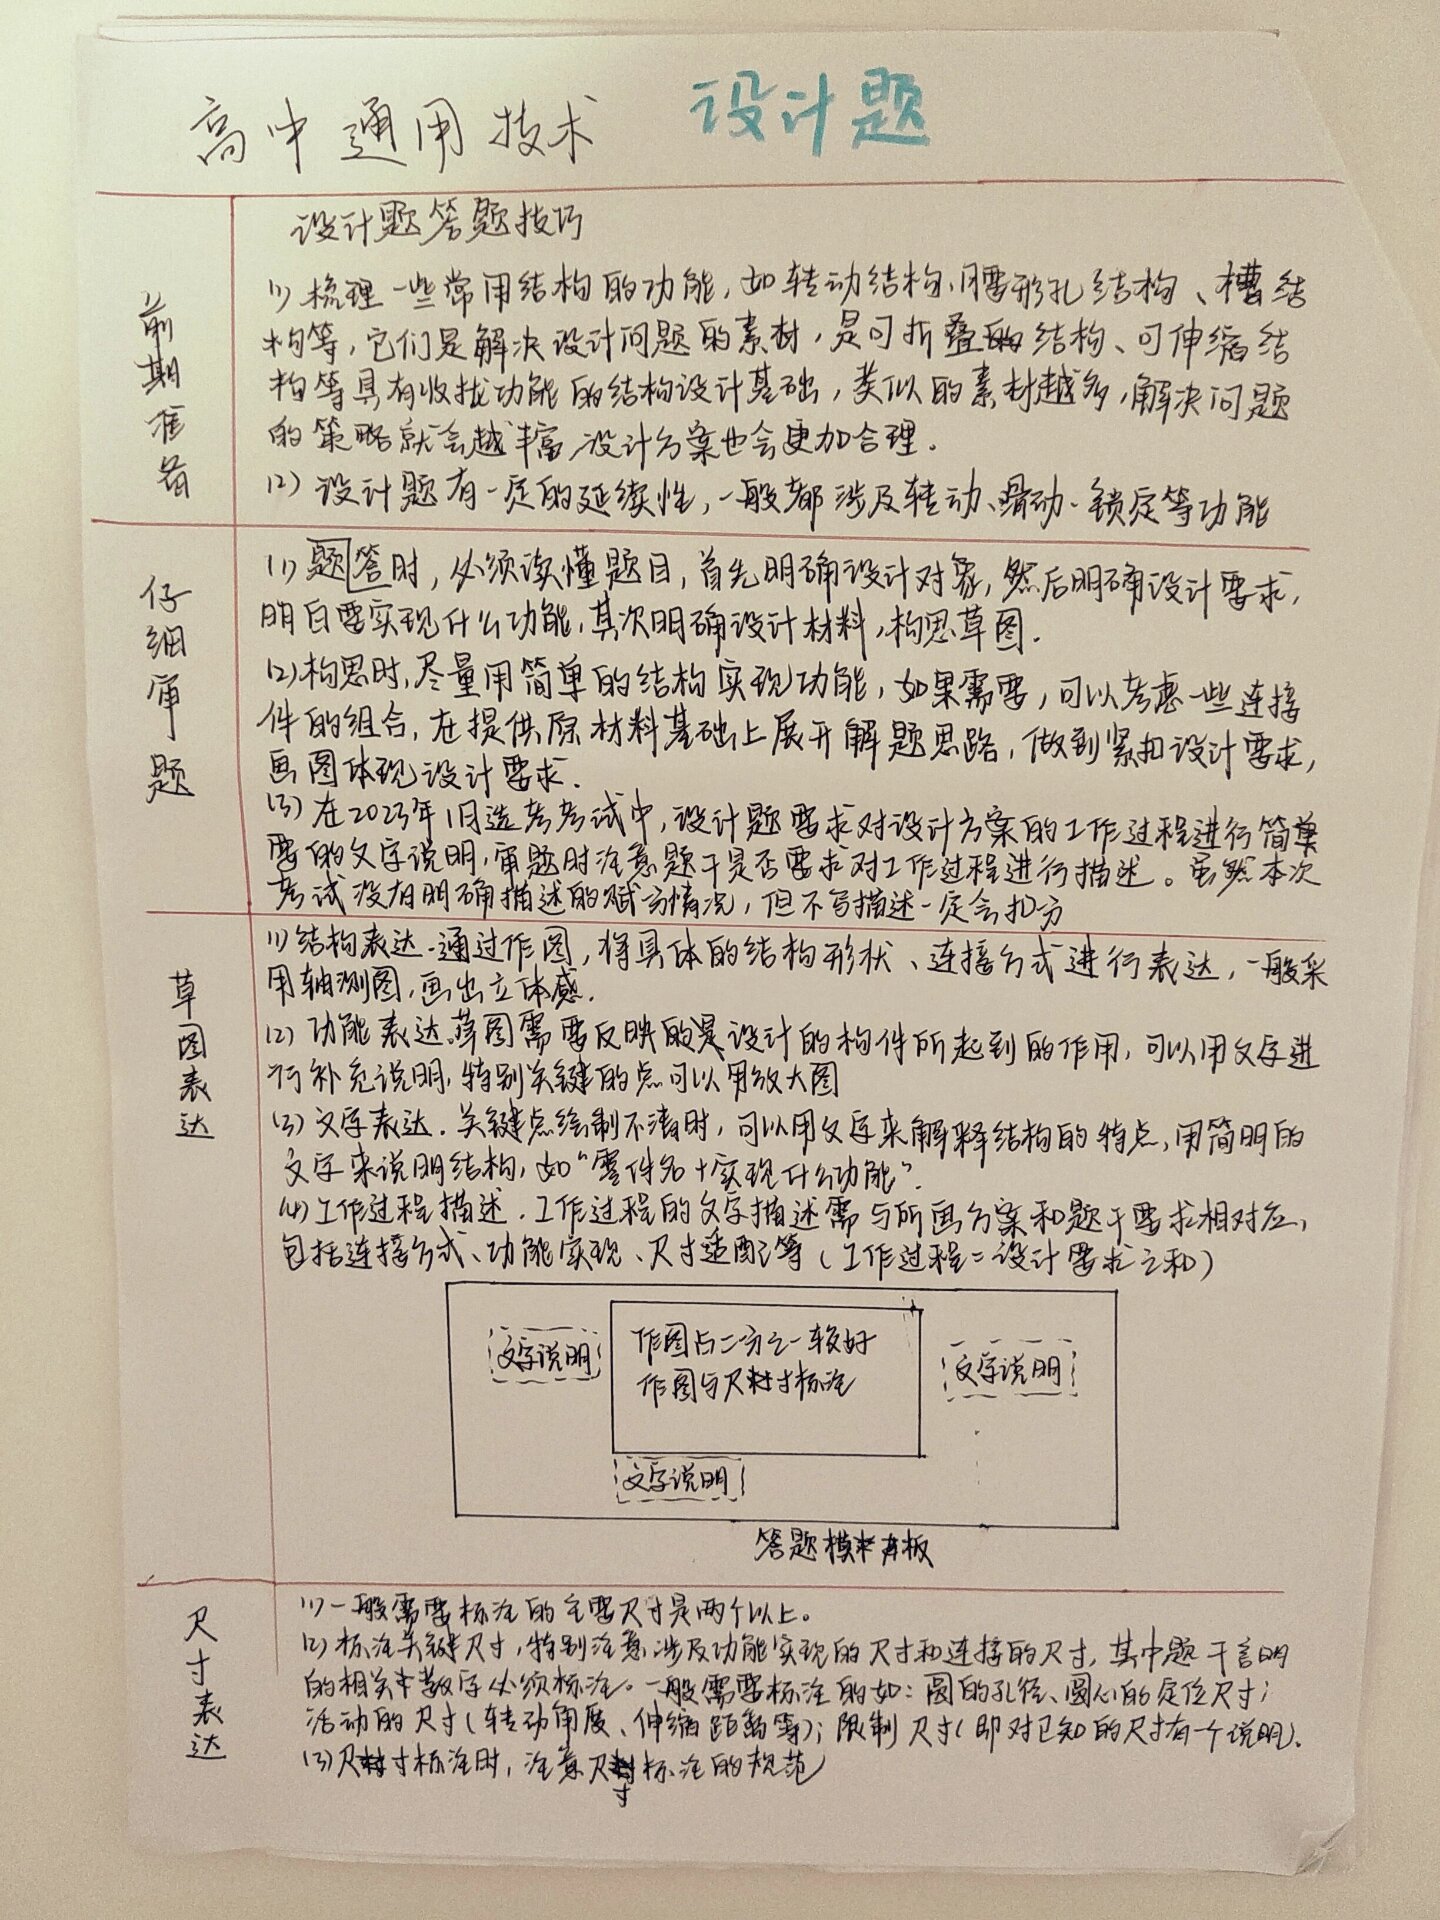 高中通用技术 设计题
设计题答题技巧
前期准备
(1) 梳理一些常用结构的功能，如转动结构、腰形孔结构、槽结
构等，它们是解决设计问题的素材，是可折叠的结构、可伸缩结
构等具有收拢功能的结构设计基础，类似的素材越多，解决问题
的策略就会越丰富，设计方案也会更加合理．
(2) 设计题有一定的延续性，一般都涉及转动、滑动、锁定等功能
仔细审题
(1) 题答时，必须读懂题目，首先明确设计对象，然后明确设计要求，
明白要实现什么功能，其次明确设计材料，构思草图．
(2) 构思时，尽量用简单的结构实现功能，如果需要，可以考虑一些连接
件的组合，在提供原材料基础上展开解题思路，做到紧扣设计要求，
画图体现设计要求．
(3) 在2023年1月选考考试中，设计题要求对设计方案的工作过程进行简单
要的文字说明，审题时注意题干是否要求对工作过程进行描述。虽然本次
考试没有明确描述的赋分情况，但不写描述一定会扣分
草图表达
(1) 结构表达．通过作图，将具体的结构形状、连接方式进行表达，一般采
用轴测图，画出立体感．
(2) 功能表达．草图需要反映的是设计的构件所起到的作用，可以用文字进
行补充说明，特别关键的点可以用放大图
(3) 文字表达．关键点绘制不清时，可以用文字来解释结构的特点，用简明的
文字来说明结构，如“零件名＋实现什么功能”．
(4) 工作过程描述．工作过程的文字描述需与所画方案和题干要求相对应，
包括连接方式、功能实现、尺寸适配等（工作过程＝设计要求之和）
文字说明
作图占二分之一较好
作图与尺寸标注
文字说明
文字说明
答题模板
尺寸表达
(1) 一般需要标注的主要尺寸是两个以上。
(2) 标注关键尺寸，特别注意涉及功能实现的尺寸和连接的尺寸，其中题干言明
的相关数字必须标注。一般需要标注的如：圆的孔径、圆心的定位尺寸；
活动的尺寸（转动角度、伸缩距离等）；限制尺寸（即对已知的尺寸有一个说明）．
(3) 尺寸标注时，注意尺寸标注的规范